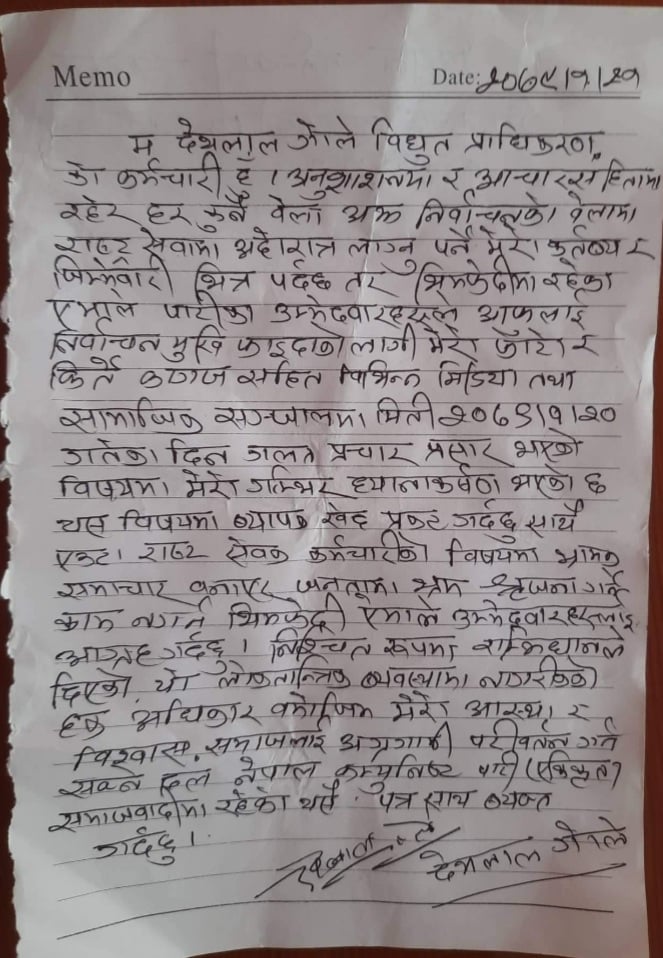 Memo Date: २०७९।१।२१
म देशलाल गोले विद्युत प्राधिकरण
को कर्मचारी हु । अनुशाशनमा र आचारसंहितामा
रहेर हर कुनै वेला अझ निर्वाचनको वेलामा
राष्ट्र सेवामा अहोरात्र लाग्नु पर्ने मेरो कर्तव्य र
जिम्मेवारी भित्र पर्दछ तर भिमफेदीमा रहेका
एमाले पार्टीका उम्मेदवारहरुले आफुलाई
निर्वाचन मुखि फाइदाको लागी मेरो फोटो र
किर्ते कागज सहित विभिन्न मिडिया तथा
सामाजिक सञ्जालमा मिती २०७९।१।२०
गतेका दिन गलत प्रचार प्रसार भएको
विषयमा मेरो गम्भिर ध्यानाकर्षण भएको छ
यस विषयमा व्यापक खेद प्रकट गर्दछु साथै
एउटा राष्ट्र सेवक कर्मचारीको विषयमा भ्रामक
समाचार वनाएर जनतामा भ्रम श्रृजना गर्ने
काम नगर्न भिमफेदी एमाले उम्मेदवारहरुलाई
आग्रह गर्दछु । निश्चित रूपमा सम्विधानले
दिएको यो लोकतान्त्रिक व्यवस्थामा नागरीकको
हक अधिकार वमोजिम मेरो आस्था र
विश्वास समाजलाई अग्रगामी परीवर्तन गर्न
सक्ने दल नेपाल कम्युनिष्ट पार्टी (एकिकृत)
समाजवादीमा रहेको यसै पत्र साथ व्यक्त
गर्दछु ।
देशलाल गोले